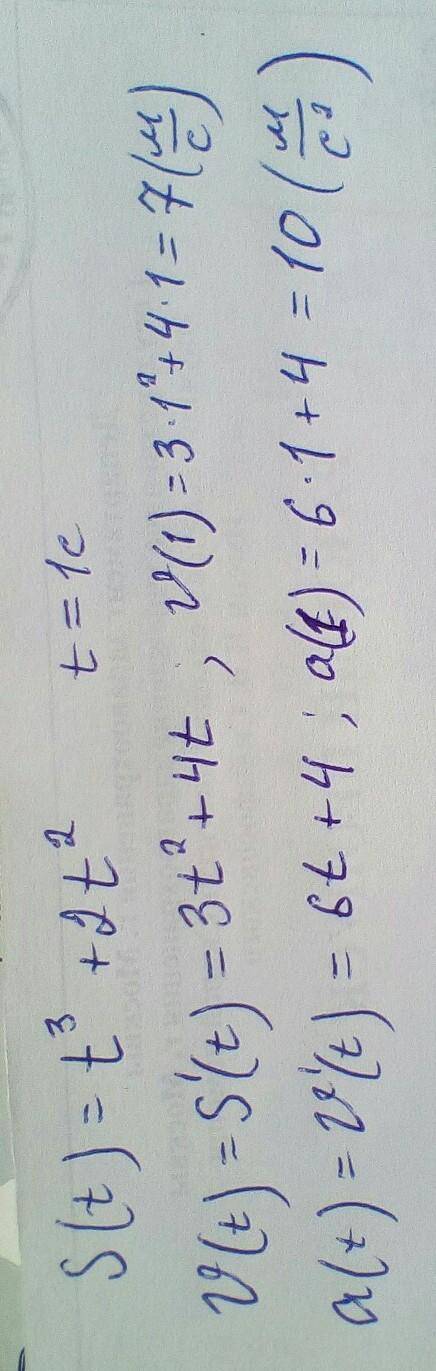 S(t) = t³ + 2t² t = 1c
v(t) = S'(t) = 3t² + 4t ; v(1) = 3·1² + 4·1 = 7 (м/с)
a(t) = v'(t) = 6t + 4 ; a(1) = 6·1 + 4 = 10 (м/с²)